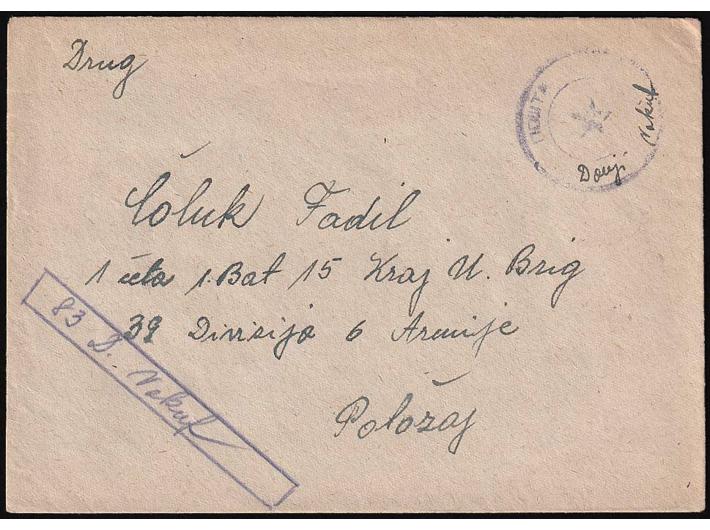 Drug
ПОШТА
Donji Vakuf
Čoluk Fadil
1 četa 1. Bat 15 Kraj U. Brig
39 Divisija 6 Armije
83 D. Vakuf
Položaj